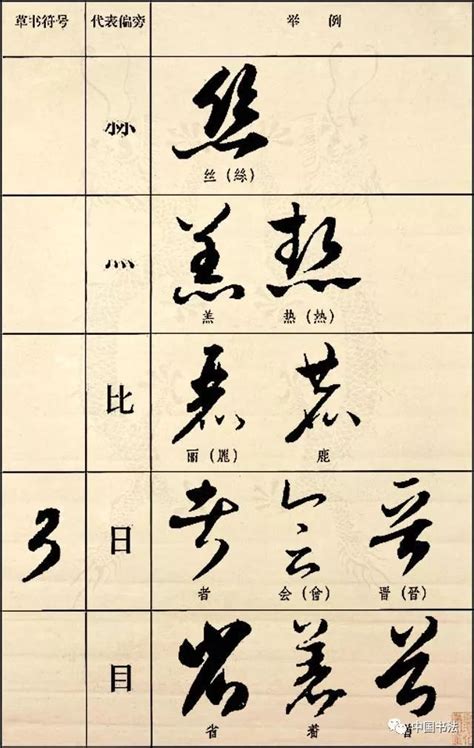 草书符号 代表偏旁 举 例
小小
丝（絲）
灬
羔 热（熱）
比
丽（麗） 鹿
日
者 会（會） 晋（晉）
目
省 著
中国书法